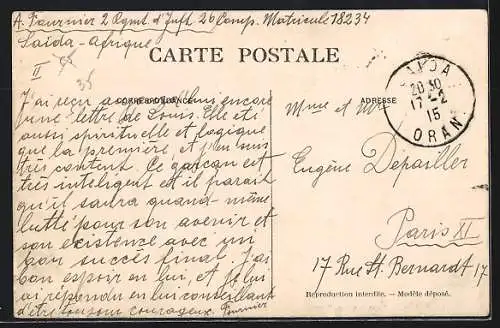 A. Fournier 2 Rgmt. d'Inft. 26 Comp. Matricule 18234
Saïda - Afrique
II
35
CARTE POSTALE
CORRESPONDENCE
ADRESSE
SAIDA
20 30
17-2
15
ORAN
J'ai reçu aujourd'hui encore
une lettre de Louis. Elle été
aussi spirituelle et logique
que la première, et j'en suis
très content. Ce garçon est
très inteligent et il parait
qu'il saura quand-même
lutté pour son avenir et
son existence avec un
bon succès final. J'ai
bon espoir en lui, et je lui
ai répondu en lui conseillant
d'être toujours courageux. Fournier
Mme et Mr
Eugène Dépailler
Paris XI
17 Rue St. Bernardt 17
Reproduction interdite. — Modèle déposé.